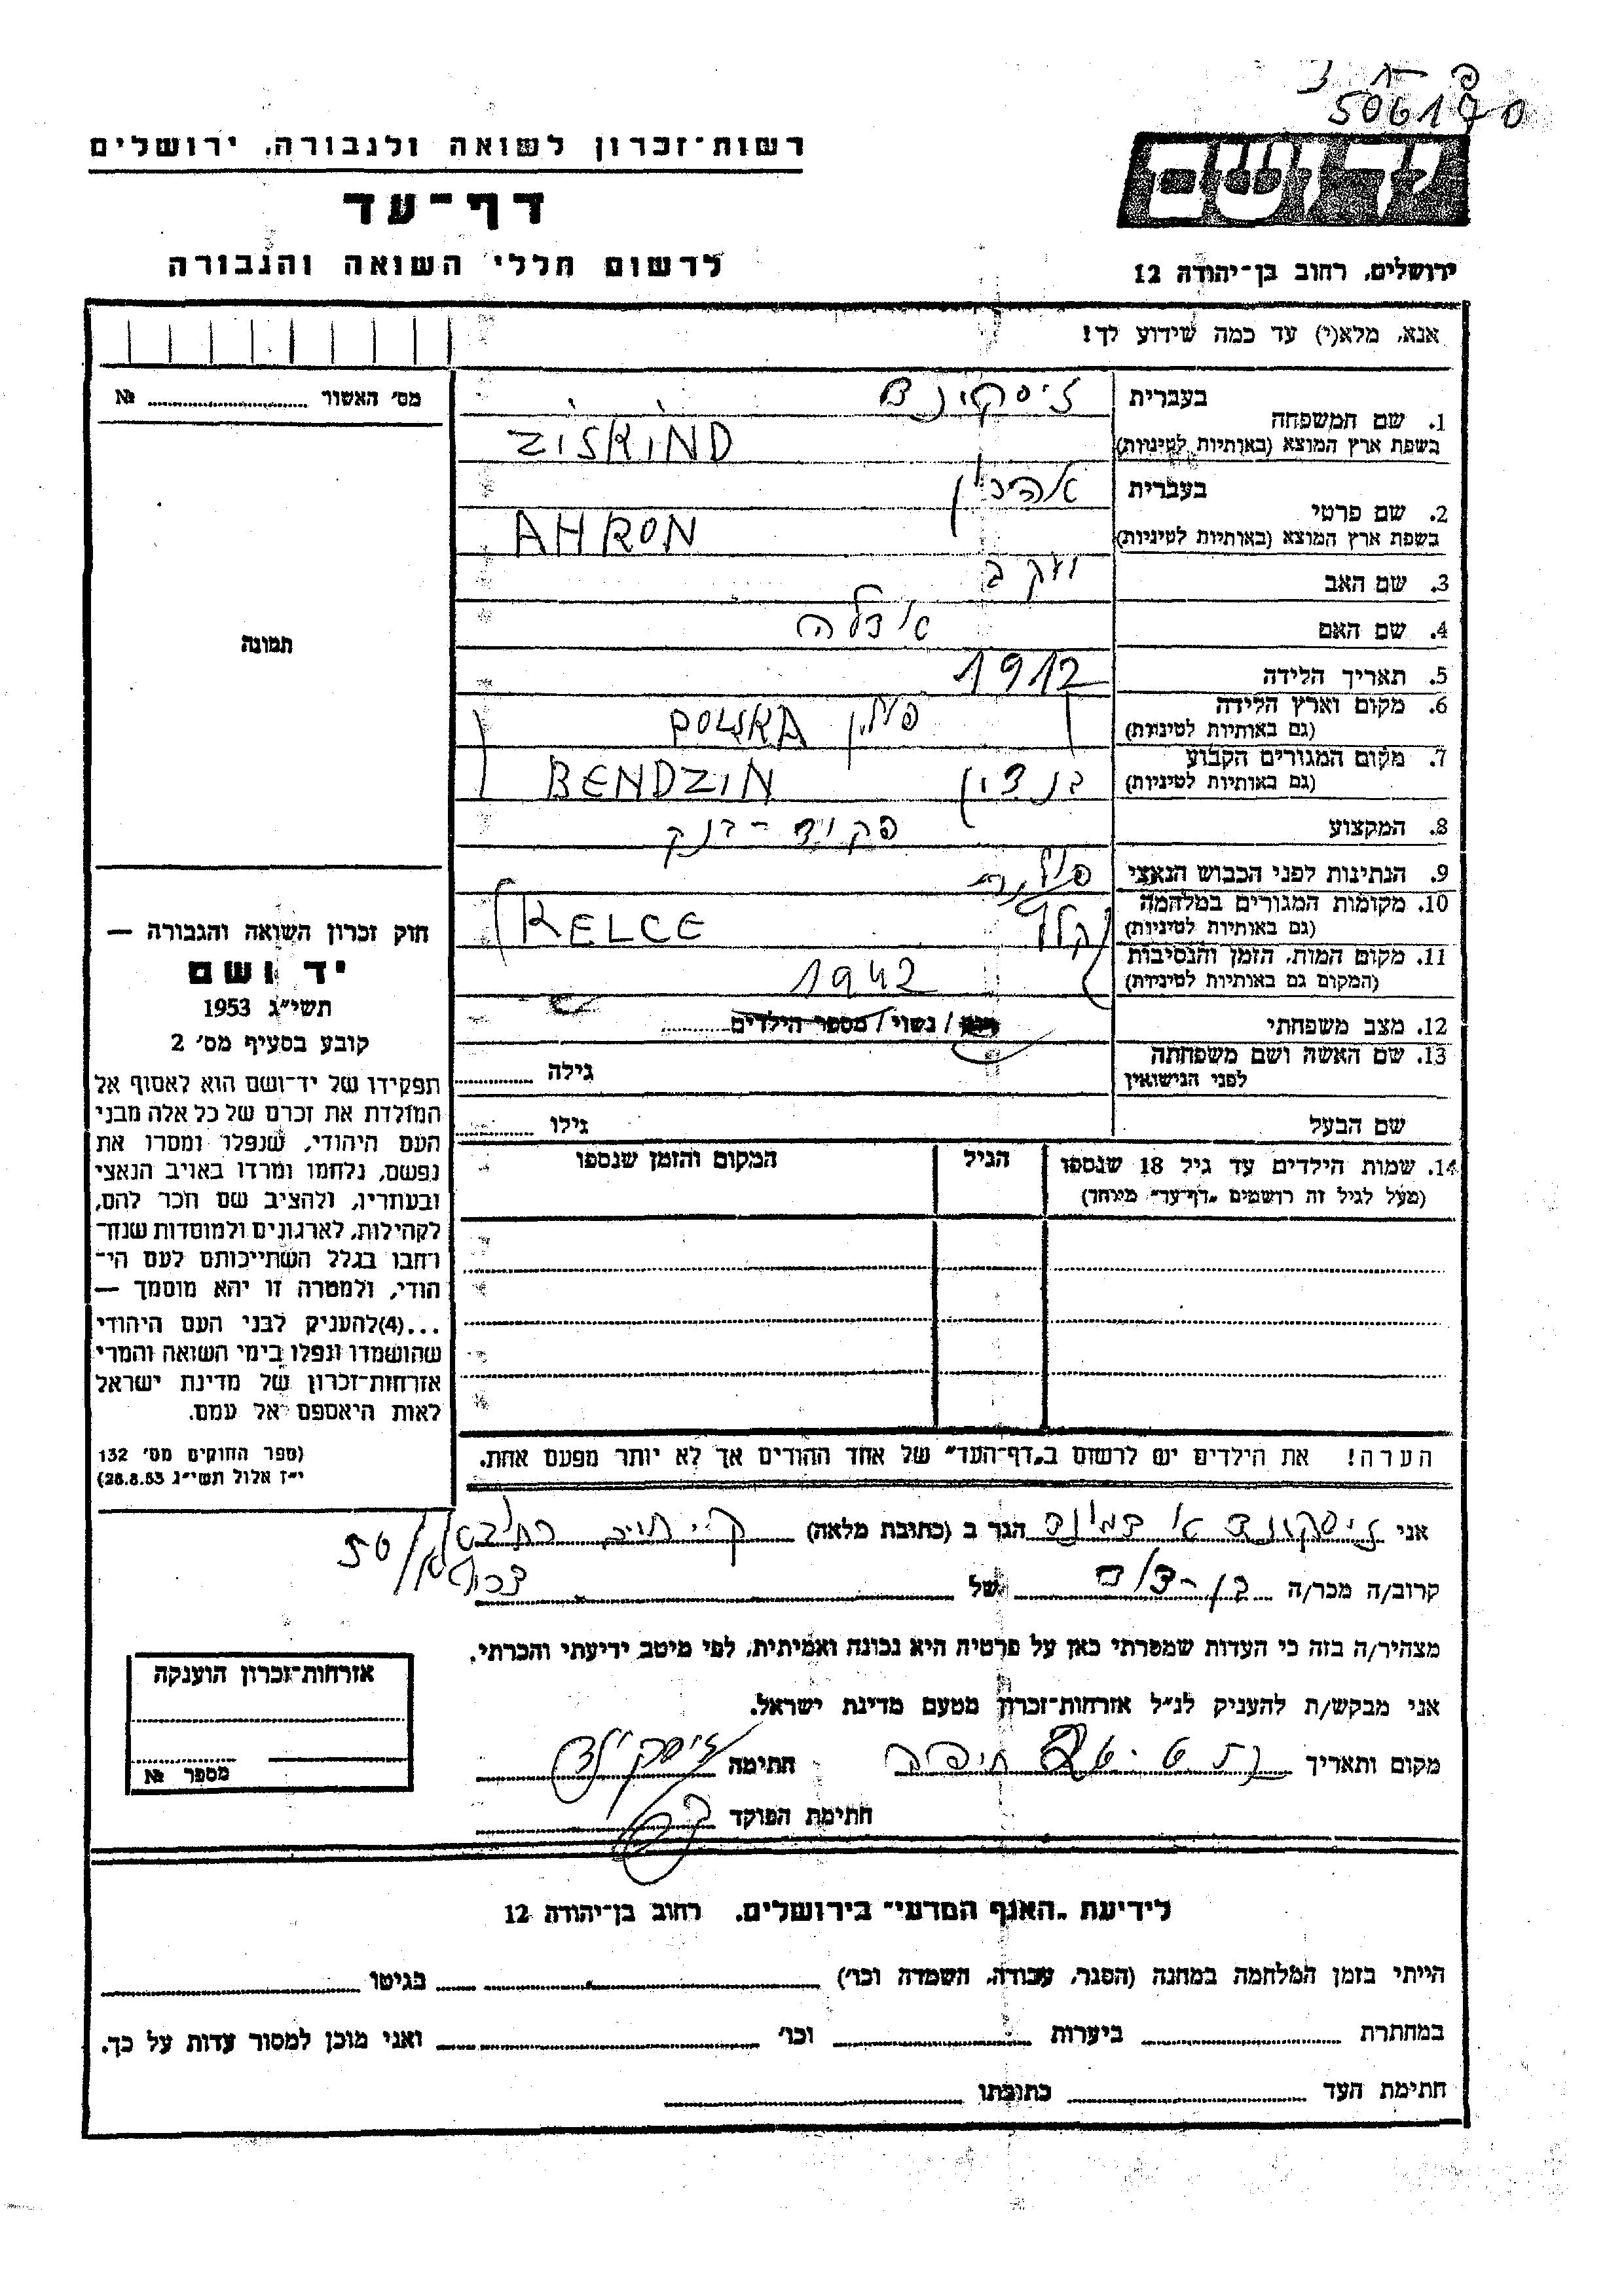 5061
רשות־זכרון לשואה ולגבורה. ירושלים
דף־עד
לרשום חללי השואה והגבורה
יד ושם
ירושלים. רחוב בן־יהודה 12
אנא, מלא(י) עד כמה שידוע לך!
מס׳ האשור № ........
תמונה
1. שם המשפחה
בעברית זיסקינד
בשפת ארץ המוצא (באותיות לטיניות) ZISKIND
2. שם פרטי
בעברית אהרון
בשפת ארץ המוצא (באותיות לטיניות) AHRON
3. שם האב יעקב
4. שם האם
5. תאריך הלידה 1912
6. מקום וארץ הלידה פולין POLSKA
(גם באותיות לטיניות)
7. מקום המגורים הקבוע בנדזין BENDZIN
(גם באותיות לטיניות)
8. המקצוע פקיד-בנק
9. הנתינות לפני הכבוש הנאצי פולנית
10. מקומות המגורים במלחמה KELCE
(גם באותיות לטיניות)
11. מקום המות, הזמן והנסיבות 1942
(המקום גם באותיות לטיניות)
12. מצב משפחתי רווק / נשוי / מספר הילדים ........
13. שם האשה ושם משפחתה גילה ........
לפני הנישואין
שם הבעל גילו ........
14. שמות הילדים עד גיל 18 שנספו הגיל המקום והזמן שנספו
(מעל לגיל זה רושמים „דף־עד״ מיוחד)
הערה! את הילדים יש לרשום ב„דף־העד״ של אחד ההורים אך לא יותר מפעם אחת.
חוק זכרון השואה והגבורה —
יד ושם
תשי״ג 1953
קובע בסעיף מס׳ 2
תפקידו של יד־ושם הוא לאסוף אל
המולדת את זכרם של כל אלה מבני
העם היהודי, שנפלו ומסרו את
נפשם, נלחמו ומרדו באויב הנאצי
ובעוזריו, ולהציב שם וזכר להם,
לקהילות, לארגונים ולמוסדות שנח־
רחבו בגלל השתייכותם לעם הי־
הודי, ולמטרה זו יהא מוסמך —
...(4)להעניק לבני העם היהודי
שהושמדו ונפלו בימי השואה והמרי
אזרחות־זכרון של מדינת ישראל
לאות היאספם אל עמם.
(ספר החוקים מס׳ 132
י״ז אלול תשי״ג 28.8.53)
אני זיסקינד הגר ב (כתובת מלאה) 50/
קרוב/ה מכר/ה בן-דוד של
מצהיר/ה בזה כי העדות שמסרתי כאן על פרטיה היא נכונה ואמיתית, לפי מיטב ידיעתי והכרתי.
אני מבקש/ת להעניק לנ״ל אזרחות־זכרון מטעם מדינת ישראל.
מקום ותאריך חיפה חתימה זיסקינד
חתימת הפוקד
אזרחות־זכרון הוענקה
מספר №
לידיעת „האגף המדעי״ בירושלים. רחוב בן־יהודה 12
הייתי בזמן המלחמה במחנה (הסגר, עבודה, השמדה וכו׳) ........ בגיטו ........
במחתרת ........ ביערות ........ וכו׳ ........ ואני מוכן למסור עדות על כך.
חתימת העד ........ כתובתו ........